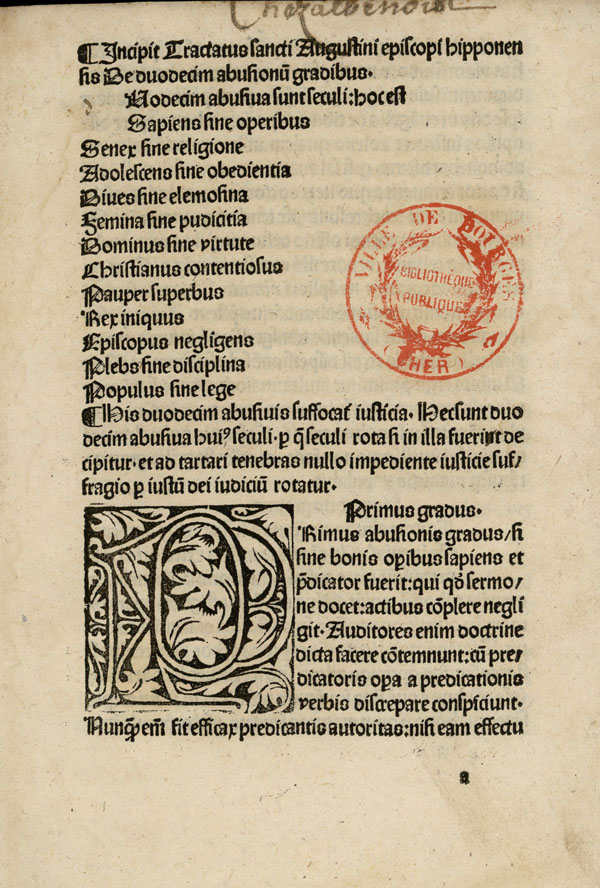 Chezalbenoist
¶ Incipit Tractatus sancti Augustini episcopi hipponen
sis De duodecim abusionū gradibus.
Uodecim abusiua sunt seculi: hoc est
Sapiens sine operibus
Senex sine religione
Adolescens sine obedientia
Diues sine elemosina
Femina sine pudicitia
Dominus sine virtute
Christianus contentiosus
Pauper superbus
Rex iniquus
Episcopus negligens
Plebs sine disciplina
Populus sine lege
¶ His duodecim abusiuis suffocat̉ iusticia. Hec sunt duo
decim abusiua huiꝰ seculi. ꝑ q̄ seculi rota si in illa fuerint de
cipitur. et ad tartari tenebras nullo impediente iusticie suf/
fragio ꝑ iustū dei iudiciū rotatur.
Primus gradus.
PRimus abusionis gradus/ si
sine bonis oꝑibus sapiens et
p̄dicator fuerit: qui qḋ sermo/
ne docet: actibus cōplere negli
git. Auditores enim doctrine
dicta facere cōtemnunt: cū pre/
dicatoris oꝑa a predicationis
verbis discrepare conspiciunt.
Nunq̄ꝫ em̄ fit efficax predicantis autoritas: nisi eam effectu
a
VILLE DE BOURGES
BIBLIOTHÈQUE
PUBLIQUE
(CHER)